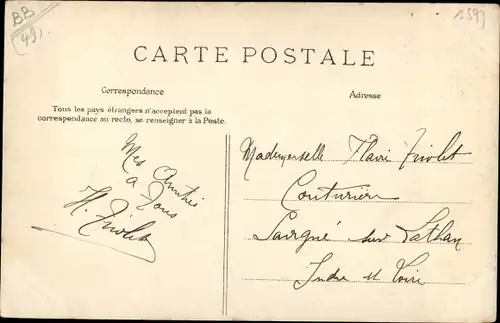 BB
(49)
CARTE POSTALE
Correspondance
Adresse
Tous les pays étrangers n'acceptent pas la
correspondance au recto, se renseigner à la Poste.
Mes Amitiés
a Tous
H. Triolet
Mademoiselle Triolet
Couturière
Savigné sur Lathan
Indre et Loire